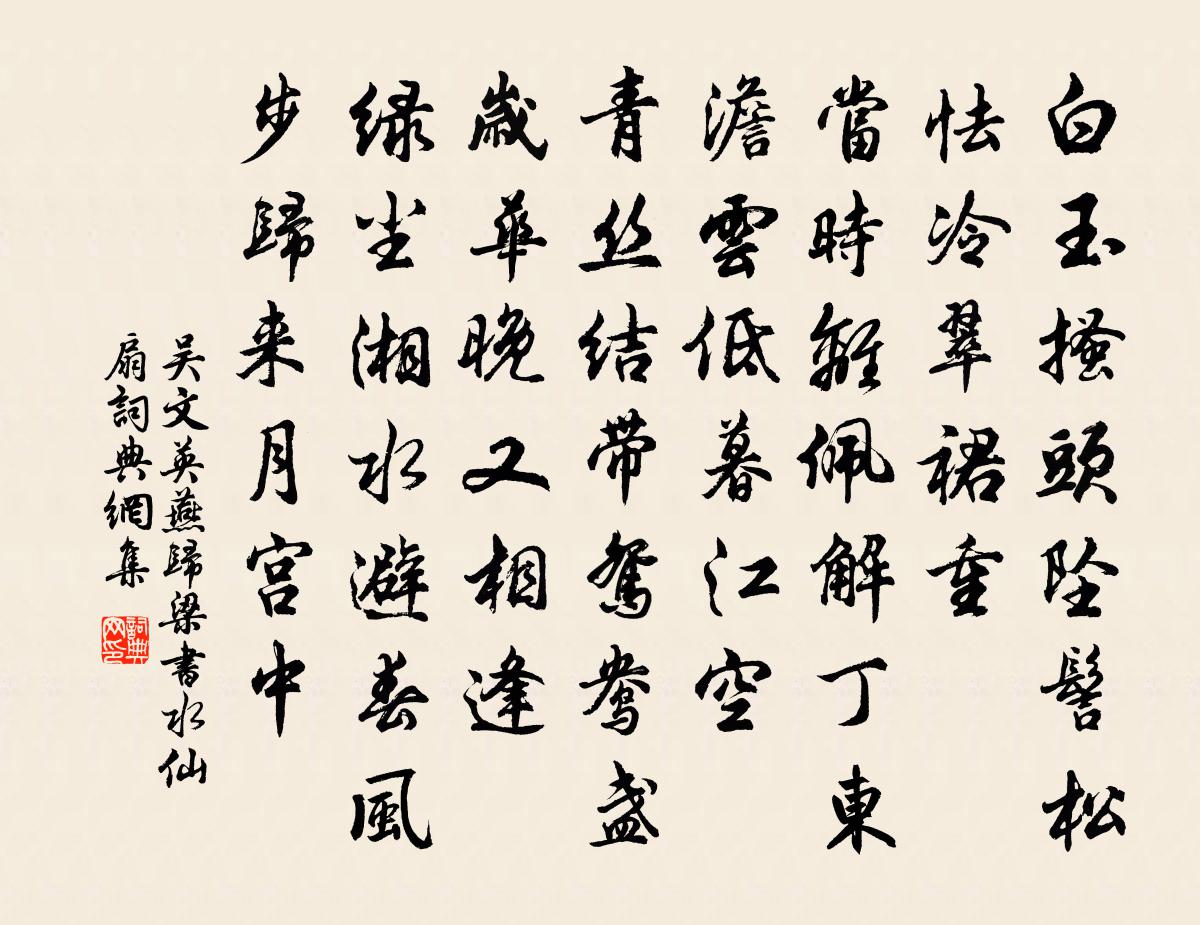 白玉搔頭坠髻松
怯冷翠裙重
當時離佩解丁東
澹雲低暮江空
青丝结带鸳鸯盏
歲華晚又相逢
绿尘湘水避春風
步歸来月宫中
吴文英燕歸梁書水仙
扇詞典網集
詞典网印